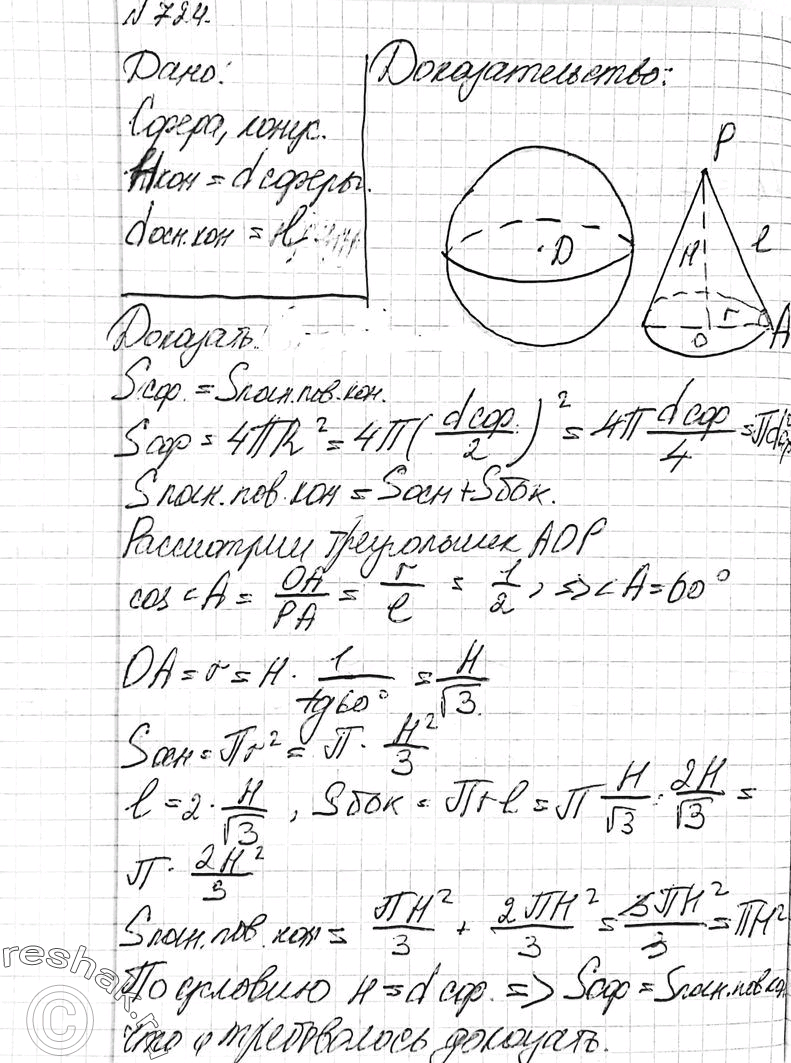 N 724.
Дано:
Доказательство:
Сфера, конус.
Hкон = dсферы.
dосн.кон = l
P
H
l
D
r
O
A
Доказать:
Sсф. = Sполн.пов.кон.
Sсф = 4πR² = 4π(dсф./2)² = 4π dсф/4 = πd²сф
Sполн.пов.кон = Sосн + Sбок.
Рассмотрим треугольник AOP
cos<A = OA/PA = r/l = 1/2, => <A = 60°
OA = r = H · 1/tg60° = H/√3.
Sосн = πr² = π · H²/3
l = 2 · H/√3, Sбок = πrl = π H/√3 · 2H/√3 =
π · 2H²/3
Sполн.пов.кон = πH²/3 + 2πH²/3 = 3πH²/3 = πH²
По условию H = dсф. => Sсф = Sполн.пов.кон
Что и требовалось доказать.
reshak.ru
©